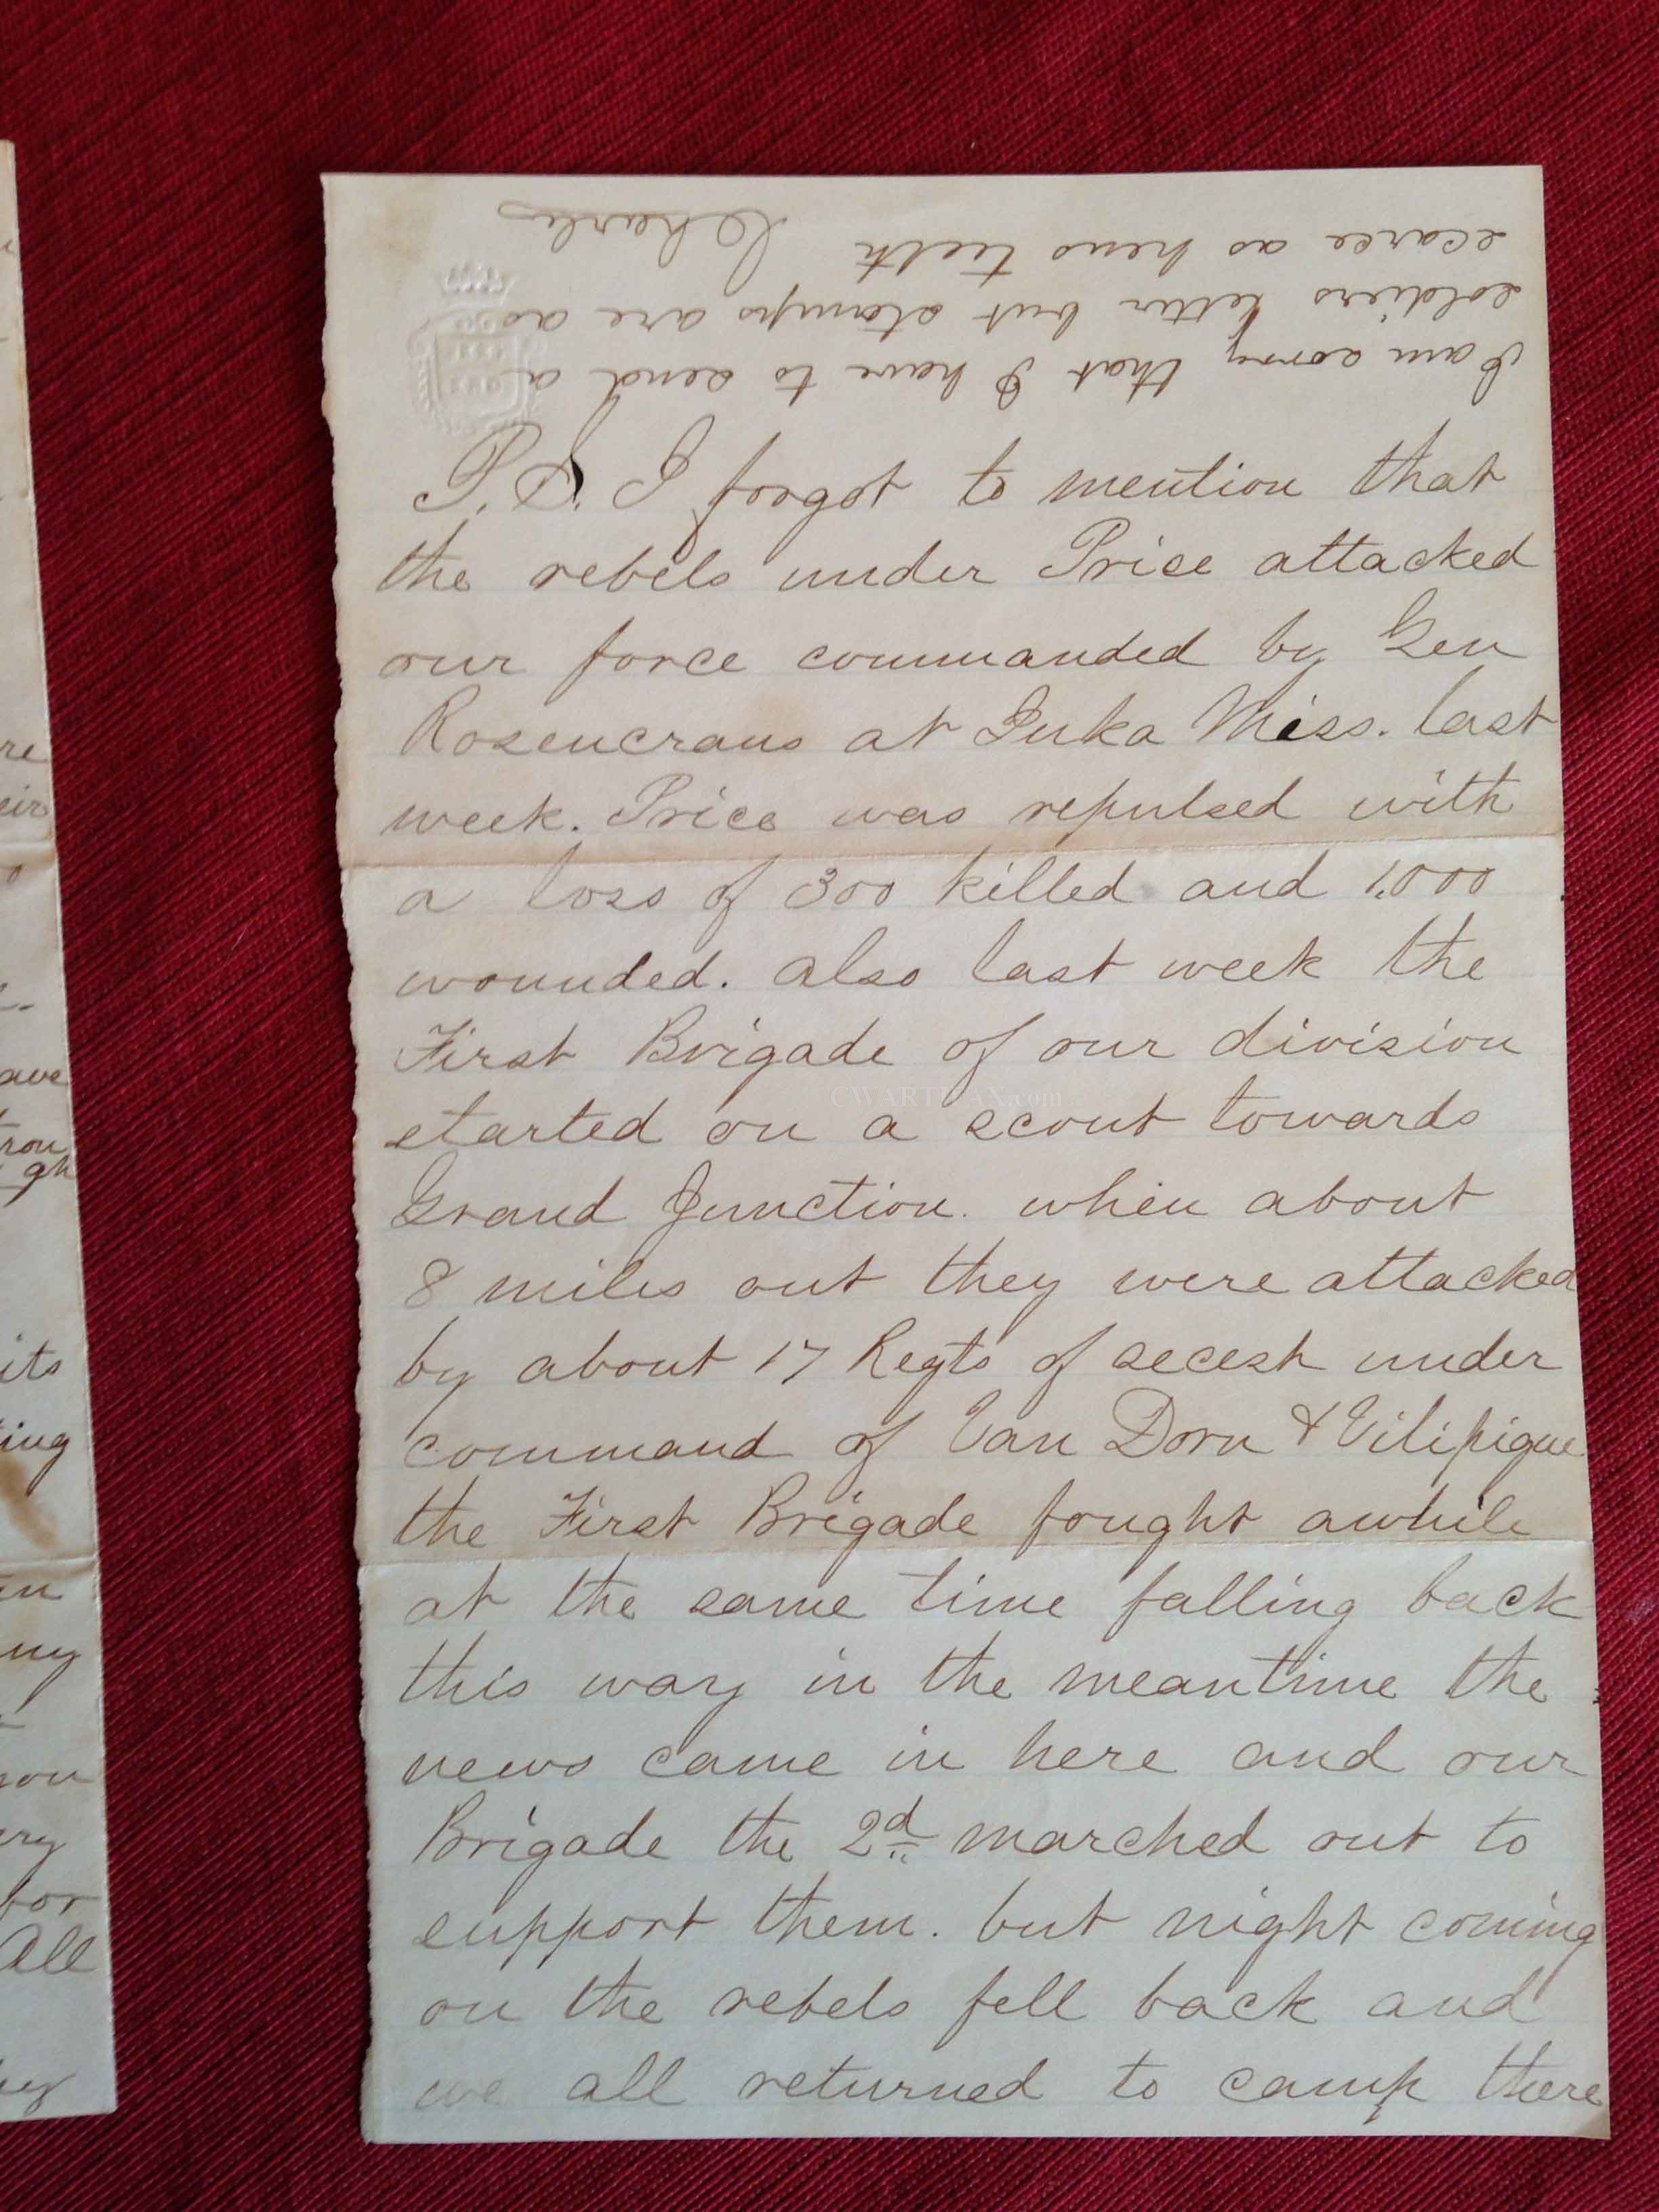 I am sorry that I have to send a
soldiers letter but stamps are as
scarce as hens teeth
Charles
P.S. I forgot to mention that
the rebels under Price attacked
our force commanded by Gen
Rosencrans at Iuka Miss. last
week. Price was repulsed with
a loss of 300 killed and 1,000
wounded. also last week the
First Brigade of our division
started on a scout towards
Grand Junction. when about
8 miles out they were attacked
by about 17 Regts of secesh under
command of Van Dorn & Vilipigue
the First Brigade fought awhile
at the same time falling back
this way in the meantime the
news came in here and our
Brigade the 2d marched out to
support them. but night coming
on the rebels fell back and
we all returned to camp there
CWARTIFAX.com
re
eir
ave
gh
its
ing
ny
ry
for
All